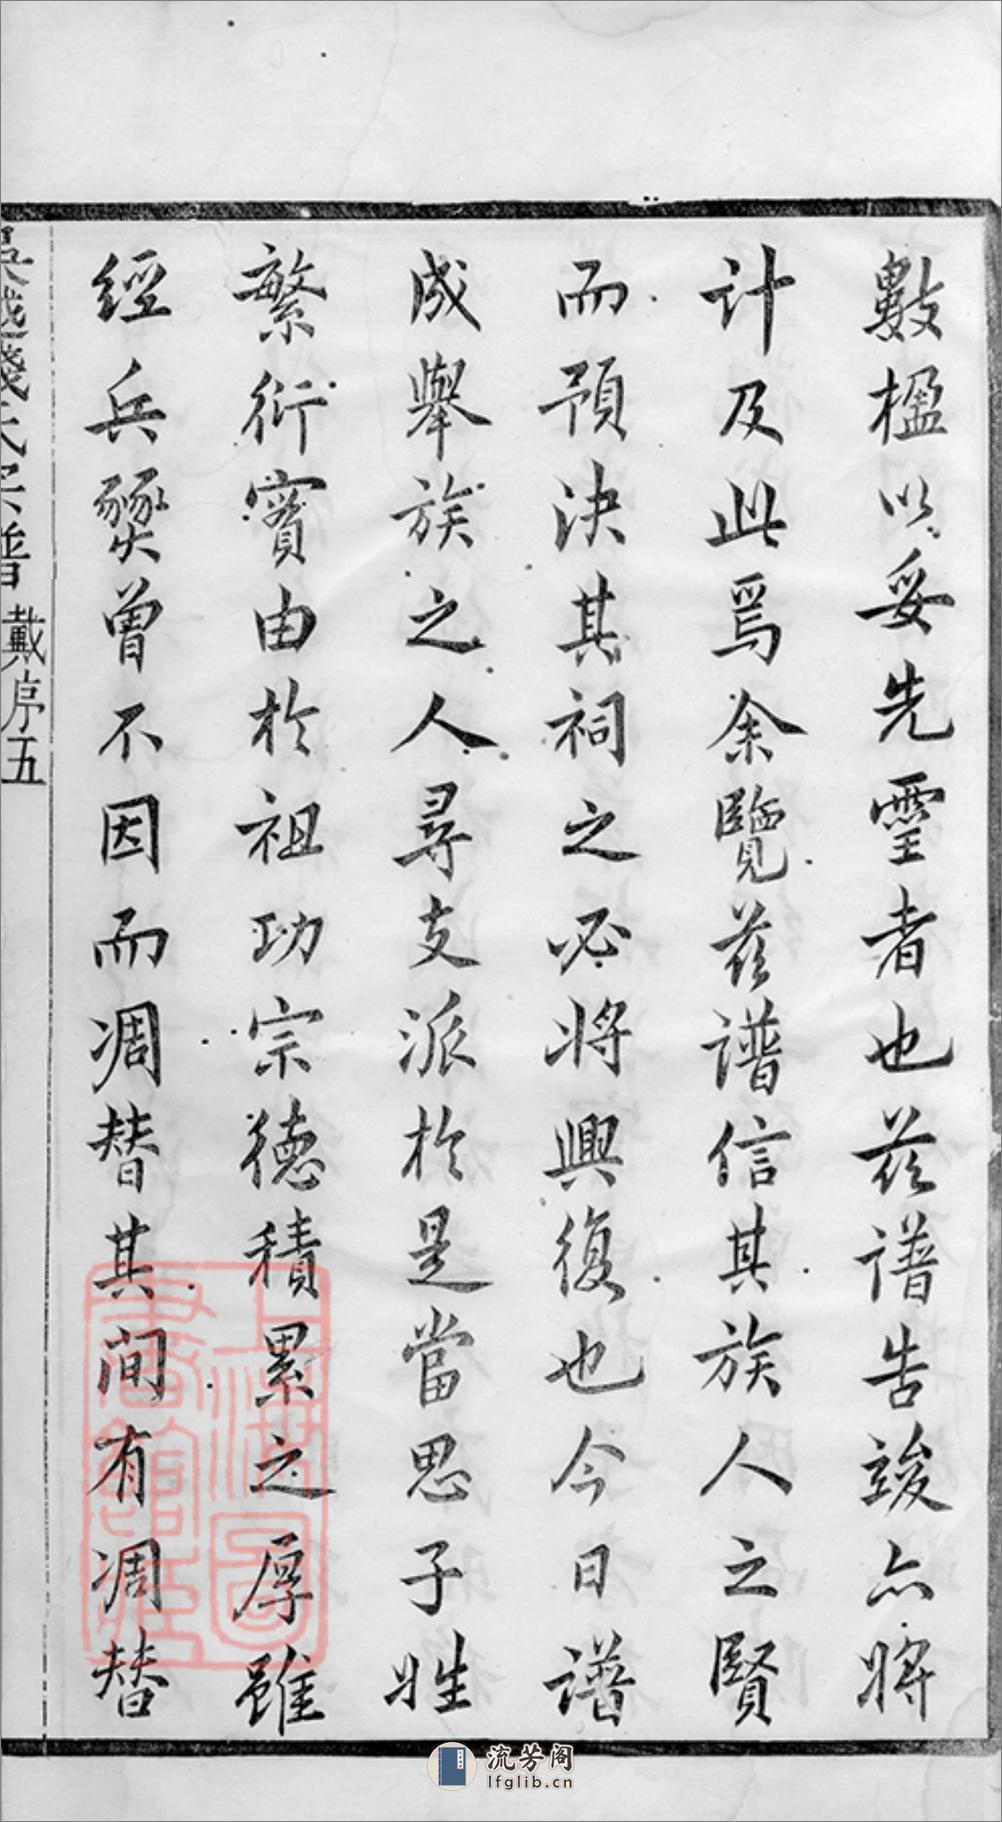 數楹以妥先靈者也茲譜告竣亦將
計及此焉余覽茲譜信其族人之賢
而預決其祠之必將興復也今日譜
成舉族之人尋支派於是當思子姓
繁衍實由於祖功宗德積累之厚雖
經兵燹曾不因而凋替其間有凋替
吳越錢氏宗譜 戴序五
上海圖書館藏
流芳阁
lfglib.cn